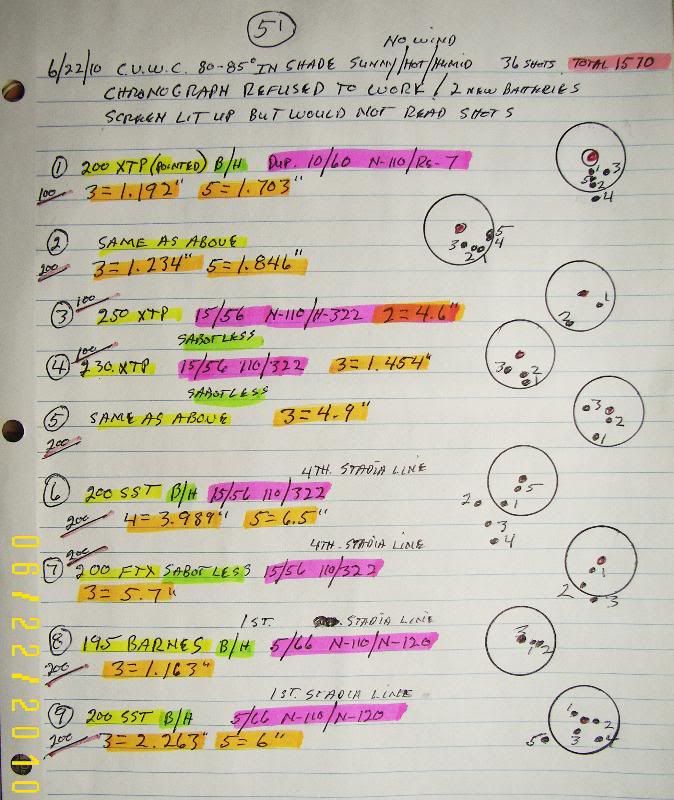 51
NO WIND
6/22/10 C.V.W.C. 80-85° IN SHADE SUNNY/HOT/HUMID 36 SHOTS TOTAL 1570
CHRONOGRAPH REFUSED TO WORK! 2 NEW BATTERIES
SCREEN LIT UP BUT WOULD NOT READ SHOTS
1 200 XTP (POINTED) B/H DUP. 10/60 N-110/RE-7
100 3=1.192" 5=1.703"
1 3 5 2 4
2 SAME AS ABOVE
200 3=1.234" 5=1.846"
3 5 4 2 1
100
3 250 XTP 15/56 N-110/H-322 2=4.6"
1 2
SABOTLESS
100
4 230 XTP 15/56 110/322 3=1.454"
3 2 1
SABOTLESS
5 SAME AS ABOVE 3=4.9"
200
3 2 1
4TH. STADIA LINE
6 200 SST B/H 15/56 110/322
200 4=3.989" 5=6.5"
5 2 1 3 4
200 4TH. STADIA LINE
7 200 FTX SABOTLESS 15/56 110/322
3=5.7"
1 2 3
1ST. STADIA LINE
8 195 BARNES B/H 5/66 N-110/N-120
200 3=1.163"
3 1 2
1ST. STADIA LINE
9 200 SST B/H 5/66 N-110/N-120
200 3=2.263" 5=6"
1 2 3 4 5
06/22/2010